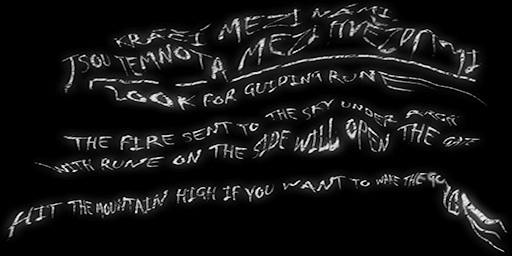 KRAZÍ MEZI NÁMI
JSOU TEMNOTA MEZI HVEZDAMI
LOOK FOR GUIDING RUNE
THE FIRE SENT TO THE SKY UNDER ARCH
WITH RUNE ON THE SIDE WILL OPEN THE GATE
HIT THE MOUNTAIN HIGH IF YOU WANT TO WAKE THE